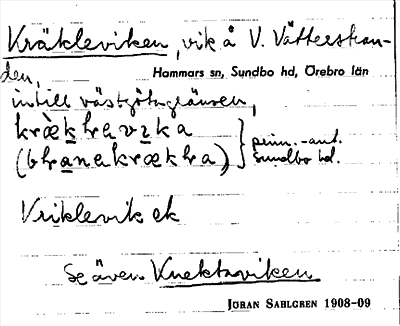 Kräkleviken, vik å V. Vätterstran-
den, Hammars sn, Sundbo hd, Örebro län
intill västgötagränsen,
kræklevika } pinn.-ant.
(brænakrækla,) Sundbo hd.
Vriklevik ek
se även Knektaviken
JÖRAN SAHLGREN 1908-09